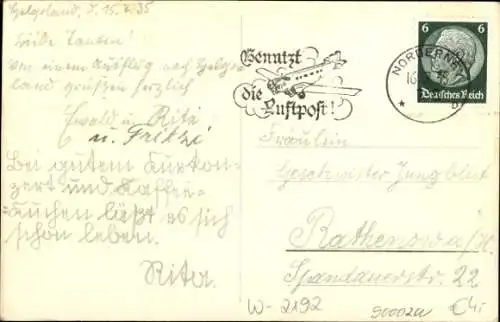 Helgoland, d. 15.7.35
Liebe Tanten!
Von einem Ausflug nach Helgo-
land grüßen herzlich
Ewald u. Rita
u. Fritzi
Bei gutem Kurkon-
zert und Kaffee-
kuchen läßt es sich
schon leben.
Rita.
Benutzt
die Luftpost!
NORDERNEY
6 6
Deutsches Reich
Fräulein
Geschwister Jungblut
Rathenow a/H.
Spandauerstr. 22
W-2192
90002a